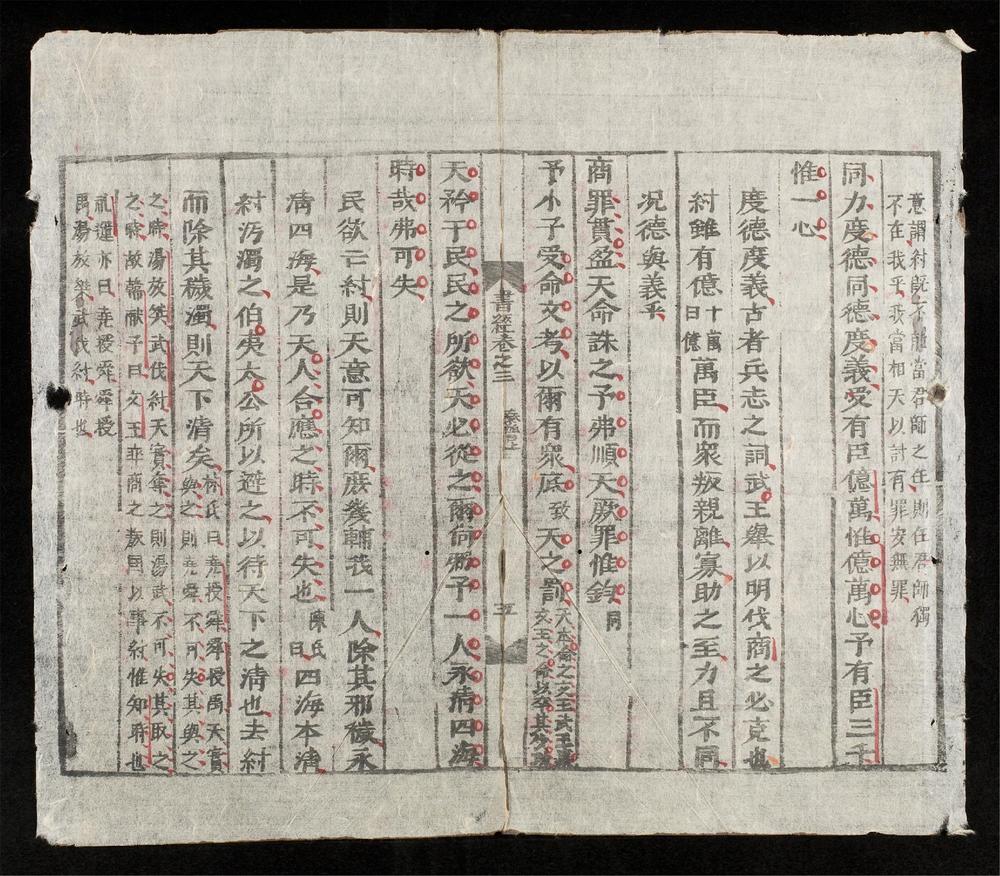 意謂紂既不能當君師之任則任君師獨
不在我乎我當相天以討有罪安無罪
同力度德同德度義受有臣億萬惟億萬心予有臣三千
惟一心
度德度義古者兵志之詞武王舉以明伐商之必克也
紂雖有億十萬曰億萬臣而眾叛親離寡助之至力且不同
况德與義乎
商罪貫盈天命誅之予弗順天厥罪惟鈞
予小子受命文考以爾有眾底致天之罰
書經卷之三
五
天矜于民民之所欲天必從之爾尚弼予一人永清四海
時哉弗可失
民欲亡紂則天意可知爾庶幾輔我一人除其邪穢永
清四海是乃天人合應之時不可失也陳氏曰四海本清
紂汚濁之伯夷太公所以避之以待天下之清也去紂
而除其穢濁則天下清矣林氏曰堯授舜舜授禹天實
與之則堯舜不可失其與之
之時湯放桀武伐紂天實奪之則湯武不可失其取之
之時故蕃獻子曰文王帥商之叛國以事紂惟知時也
亂道亦曰堯授舜舜授
禹湯放桀武伐紂時也